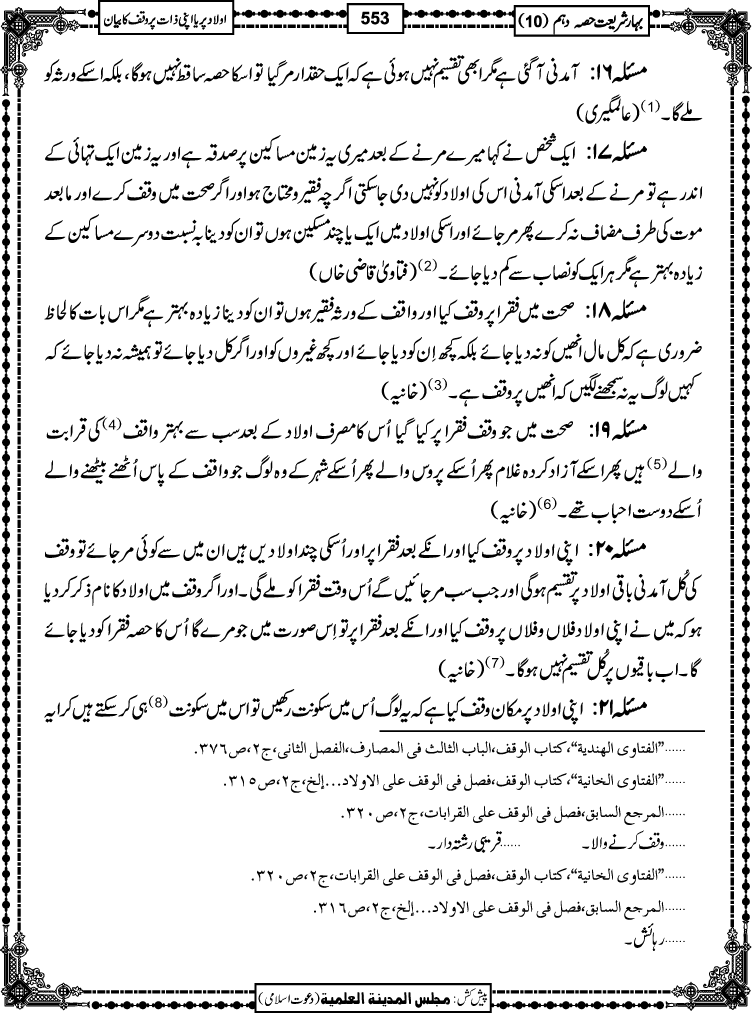 بہارِ شریعت حصہ دہم (10)
553
اولاد پر یا اپنی ذات پر وقف کا بیان
مسئلہ ۱۶: آمدنی آگئی ہے مگر ابھی تقسیم نہیں ہوئی ہے کہ ایک حقدار مر گیا تو اسکا حصہ ساقط نہیں ہوگا، بلکہ اسکے ورثہ کو
ملے گا۔(1) (عالمگیری)
مسئلہ ۱۷: ایک شخص نے کہا میرے مرنے کے بعد میری یہ زمین مساکین پر صدقہ ہے اور یہ زمین ایک تہائی کے
اندر ہے تو مرنے کے بعد اسکی آمدنی اس کی اولاد کو نہیں دی جاسکتی اگرچہ فقیر و محتاج ہو اور اگر صحت میں وقف کرے اور مابعد
موت کی طرف مضاف نہ کرے پھر مر جائے اور اسکی اولاد میں ایک یا چند مسکین ہوں تو ان کو دینا بہ نسبت دوسرے مساکین کے
زیادہ بہتر ہے مگر ہر ایک کو نصاب سے کم دیا جائے۔(2) (فتاویٰ قاضی خاں)
مسئلہ ۱۸: صحت میں فقرا پر وقف کیا اور واقف کے ورثہ فقیر ہوں تو ان کو دینا زیادہ بہتر ہے مگر اس بات کا لحاظ
ضروری ہے کہ کل مال انھیں کو نہ دیا جائے بلکہ کچھ اِن کو دیا جائے اور کچھ غیروں کو اور اگر کل دیا جائے تو ہمیشہ نہ دیا جائے کہ
کہیں لوگ یہ نہ سمجھنے لگیں کہ انھیں پر وقف ہے۔(3) (خانیہ)
مسئلہ ۱۹: صحت میں جو وقف فقرا پر کیا گیا اُس کا مصرف اولاد کے بعد سب سے بہتر واقف(4) کی قرابت
والے(5) ہیں پھر اسکے آزاد کردہ غلام پھر اُسکے پروس والے پھر اُسکے شہر کے وہ لوگ جو واقف کے پاس اُٹھنے بیٹھنے والے
اُسکے دوست احباب تھے۔(6) (خانیہ)
مسئلہ ۲۰: اپنی اولاد پر وقف کیا اور انکے بعد فقرا پر اور اُسکی چند اولادیں ہیں ان میں سے کوئی مر جائے تو وقف
کی کُل آمدنی باقی اولاد پر تقسیم ہوگی اور جب سب مر جائیں گے اُس وقت فقرا کو ملے گی۔ اور اگر وقف میں اولاد کا نام ذکر کر دیا
ہو کہ میں نے اپنی اولاد فلاں وفلاں پر وقف کیا اور انکے بعد فقرا پر تو اِس صورت میں جو مرے گا اُس کا حصہ فقرا کو دیا جائے
گا۔ اب باقیوں پر کُل تقسیم نہیں ہوگا۔(7) (خانیہ)
مسئلہ ۲۱: اپنی اولاد پر مکان وقف کیا ہے کہ یہ لوگ اُس میں سکونت رکھیں تو اس میں سکونت(8) ہی کر سکتے ہیں کرایہ
......"الفتاوی الهندية"، كتاب الوقف، الباب الثالث فی المصارف، الفصل الثانی، ج٢، ص٣٧٦.
......"الفتاوی الخانية"، كتاب الوقف، فصل فی الوقف علی الاولاد...إلخ، ج٢، ص٣١٥.
......المرجع السابق، فصل فی الوقف علی القرابات، ج٢، ص٣٢٠.
......وقف کرنے والا۔ ......قریبی رشتہ دار۔
......"الفتاوی الخانية"، كتاب الوقف، فصل فی الوقف علی القرابات، ج٢، ص٣٢٠.
......المرجع السابق، فصل فی الوقف علی الاولاد...إلخ، ج٢، ص٣١٦.
......رہائش۔
پیش کش: مجلس المدینة العلمیة (دعوت اسلامی)